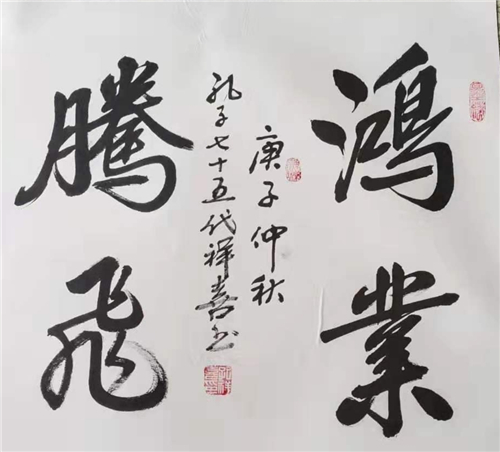 鸿業
騰飛
庚子仲秋
孔子七十五代祥喜书